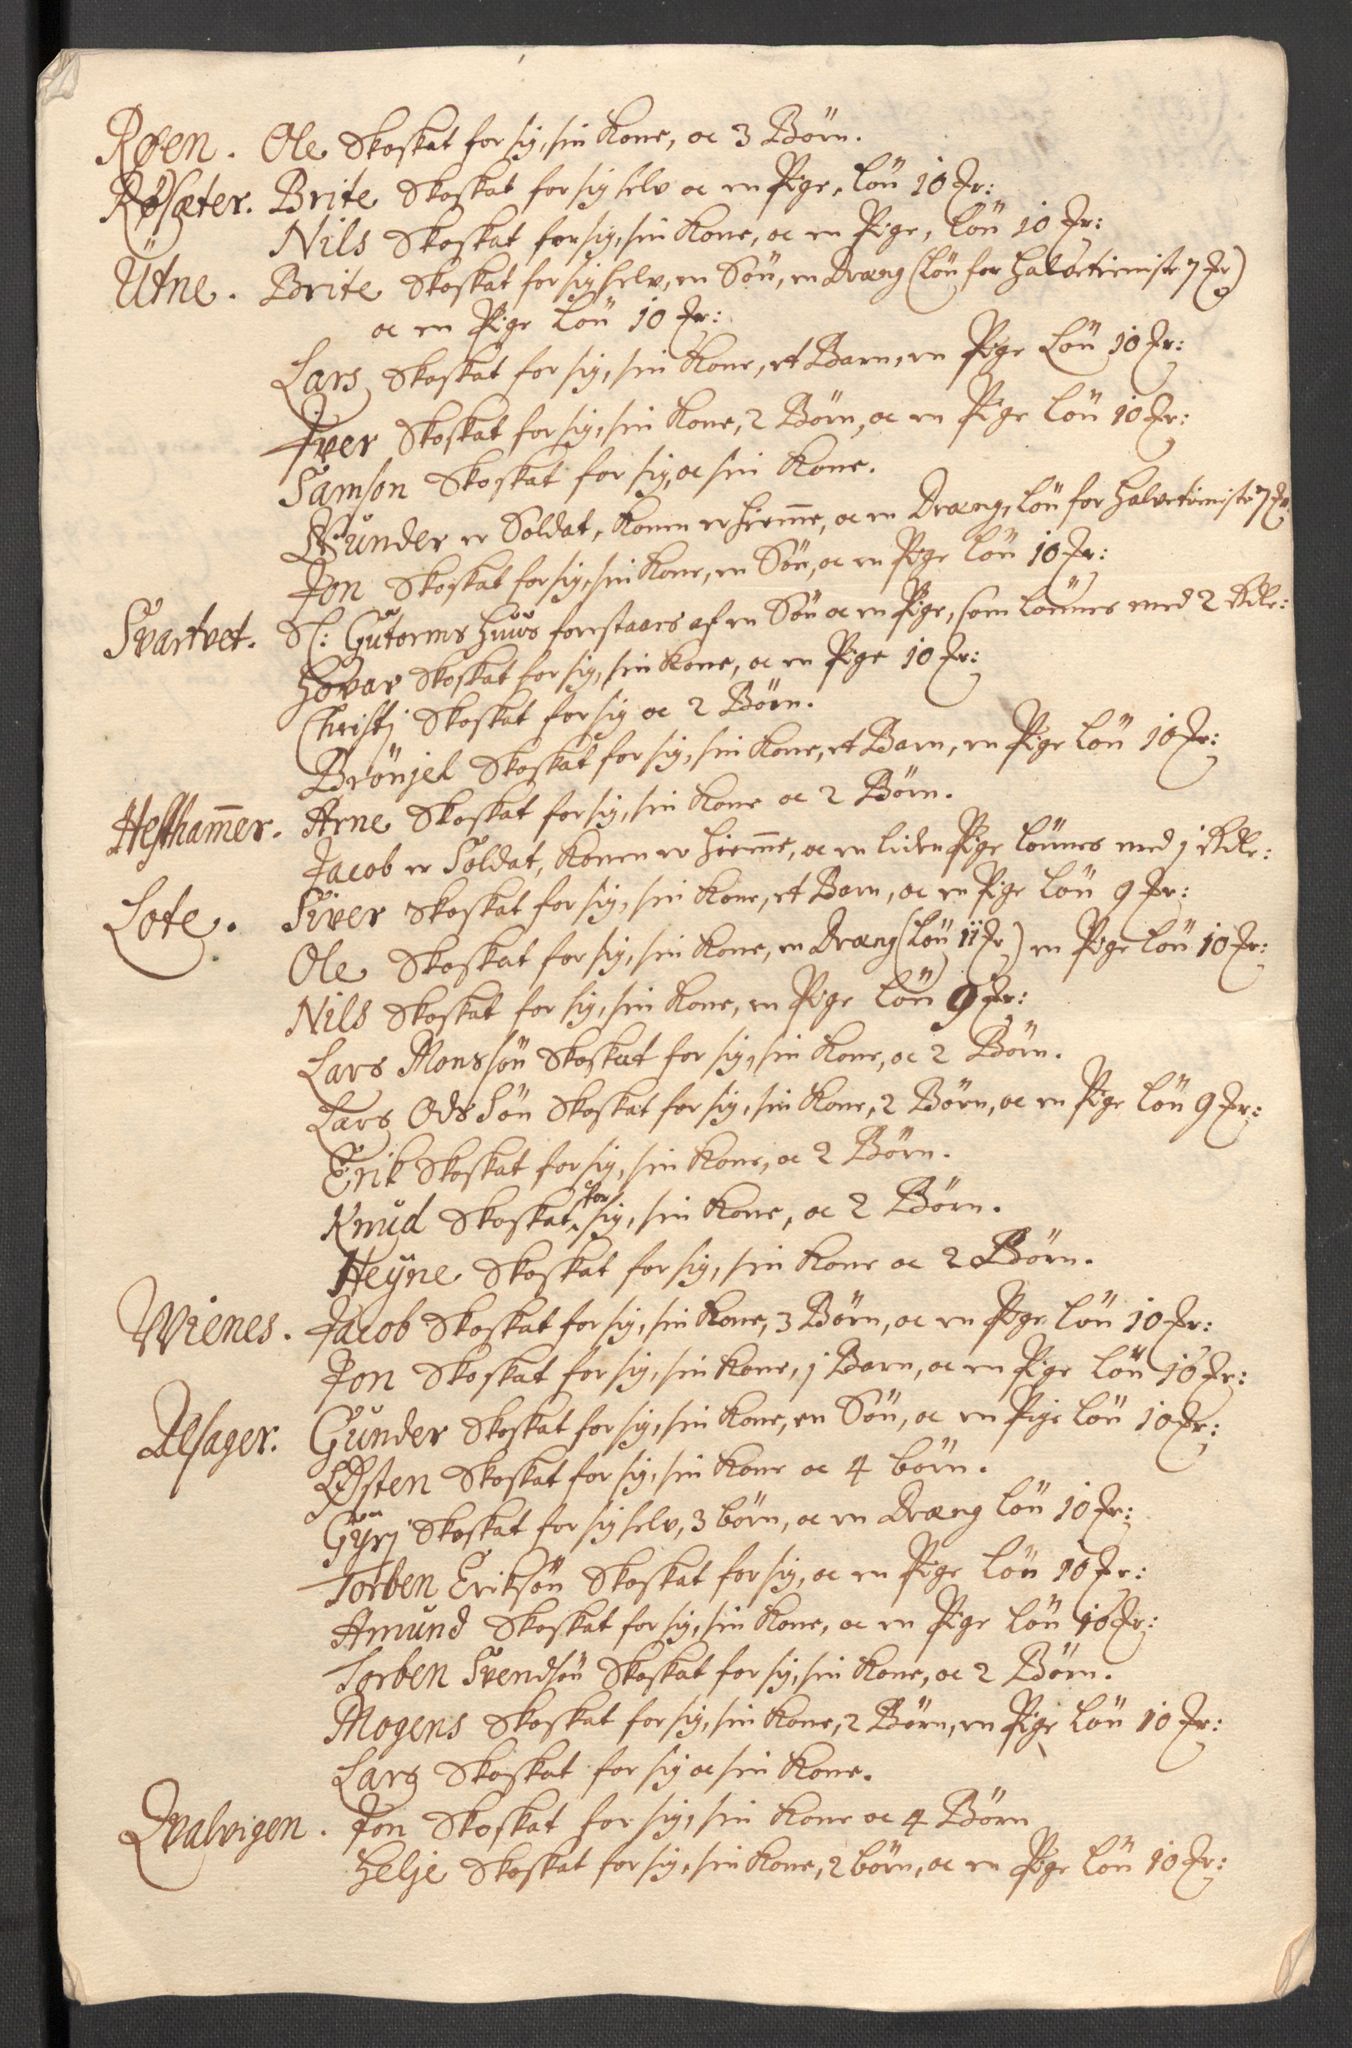 Røen. Ole Skoskat for sig, sin Kone, oc 3 Börn.
Røsæter. Brite Skoskat for sig selv oc en Pige, Lön 10 Fr:
Nils Skoskat for sig, sin Kone, oc en Pige, Lön 10 Fr:
Ütne. Brite Skoskat for sig selv, en Sön, en Dræng (Lön for halvetieniste 7 Fr)
oc en Pige Lön 10 Fr:
Lars Skoskat for sig, sin Kone, et Barn, en Pige Lön 10 Fr:
Iver Skoskat for sig, sin Kone, 2 Börn, oc en Pige Lön 10 Fr:
Samson Skoskat for sig, oc sin Kone.
Gunder er Soldat, Konen er hiemme, oc en Dræng, Lön for halvetieniste 7 Fr:
Jon Skoskat for sig, sin Kone, en Sön, oc en Pige Lön 10 Fr:
Svartvet. Sl: Gutorms huus forestaars af en Sön oc en Pige, som lönnes med 2 Rdlr:
Hovar Skoskat for sig, sin Kone, oc en Pige 10 Fr:
Christj Skoskat for sig oc 2 Börn.
Brönjel Skoskat for sig, sin Kone, et Barn, en Pige Lön 10 Fr:
Hestham̄er. Arne Skoskat for sig, sin Kone oc 2 Börn.
Jacob er Soldat, Konen er hiem̄e, oc en liden Pige lönnes med j Rdlr:
Lote. Siver Skoskat for sig, sin Kone, et Barn, oc en Pige Lön 9 Fr:
Ole Skoskat for sig, sin Kone, en Dræng (Lön 11 Fr) en Pige Lön 10 Fr:
Nils Skoskat for sig, sin Kone, en Pige Lön 9 Fr:
Lars Monssön Skoskat for sig, sin Kone, oc 2 Börn.
Lars Odssön Skoskat for sig, sin Kone, 2 Börn, oc en Pige Lön 9 Fr:
Erik Skoskat for sig, sin Kone, oc 2 Börn.
Knud Skoskat for sig, sin Kone, oc 2 Börn.
Heyne Skoskat for sig, sin Kone oc 2 Börn.
Wienes. Jacob Skoskat for sig, sin Kone, 3 Börn, oc en Pige Lön 10 Fr:
Jon Skoskat for sig, sin Kone, j Barn, oc en Pige Lön 10 Fr:
Alsager. Gunder Skoskat for sig, sin Kone, en Sön, oc en Pige Lön 10 Fr:
Østen Skoskat for sig, sin Kone oc 4 börn.
Gyrj Skoskat for sig selv, 3 börn, oc en Dræng Lön 10 Fr:
Torben Eriksön Skoskat for sig, oc en Pige Lön 10 Fr:
Amund Skoskat for sig, sin Kone, oc en Pige Lön 10 Fr:
Torben Svendsön Skoskat for sig, sin Kone, oc 2 Börn.
Mogens Skoskat for sig, sin Kone, 2 Börn, en Pige Lön 10 Fr:
Lars Skoskat for sig oc sin Kone.
Qvalvigen. Jon Skoskat for sig, sin Kone oc 4 Börn
Helje Skoskat for sig, sin Kone, 2 börn, oc en Pige Lön 10 Fr: